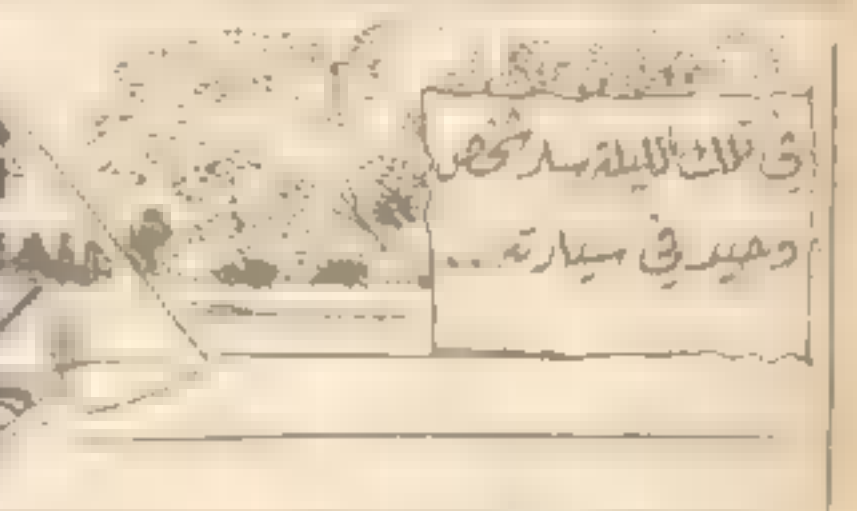 فى تلك الليلة سار شخص
وحيد فى سيارته ..